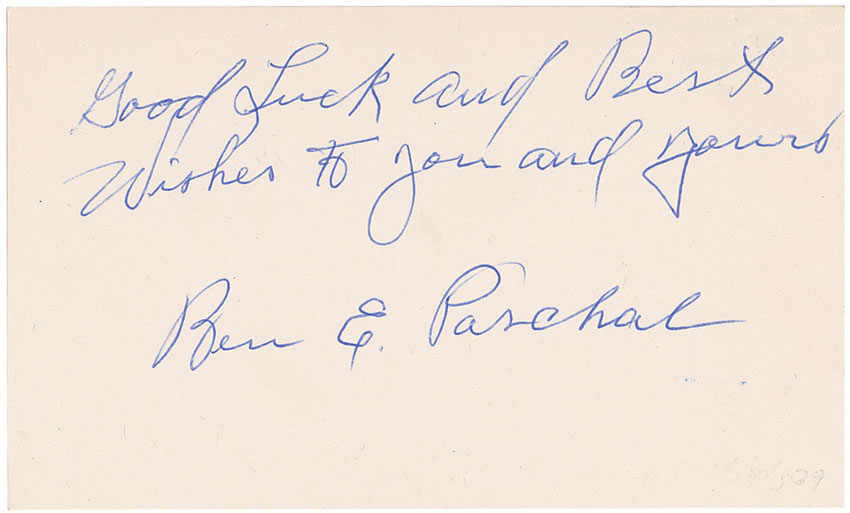 Good Luck and Best
Wishes to you and yours
Ben E. Paschal